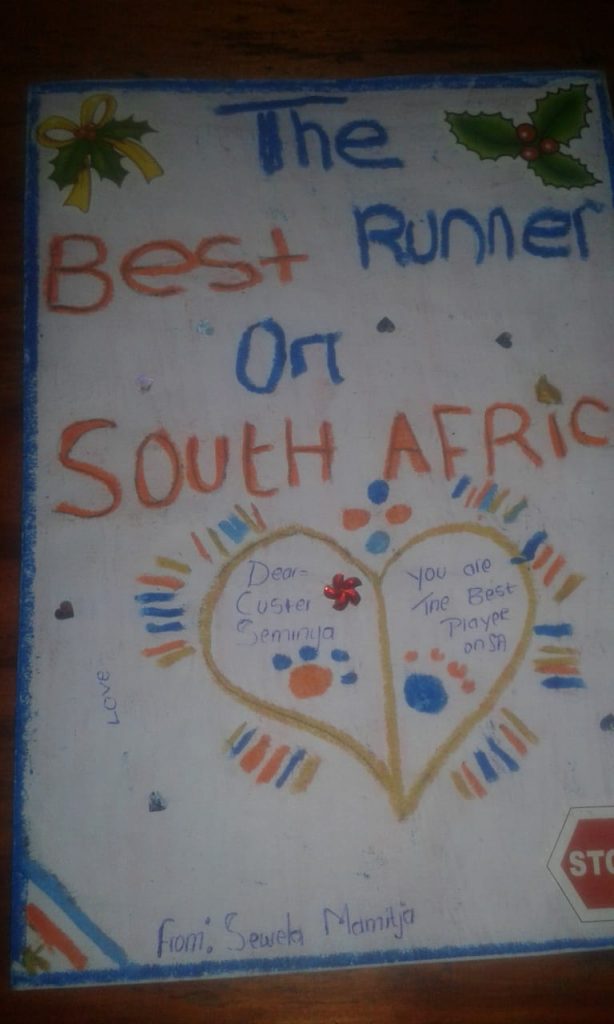 The
Best Runner
On
SOUTH AFRIC
Dear-
Custer
Seminya
you are
The Best
Player
on SA
LOVE
STO
From: Sewela Mamitja